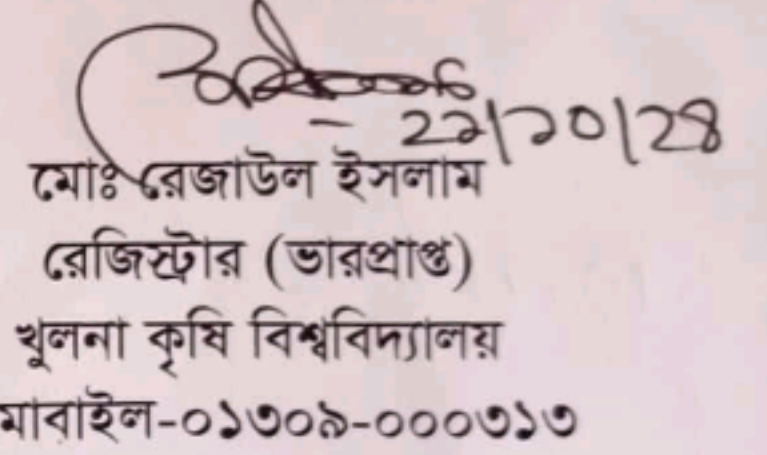 ২২/১০/২৪
মোঃ রেজাউল ইসলাম
রেজিস্ট্রার (ভারপ্রাপ্ত)
খুলনা কৃষি বিশ্ববিদ্যালয়
মোবাইল-০১৩০৯-০০০৩১৩